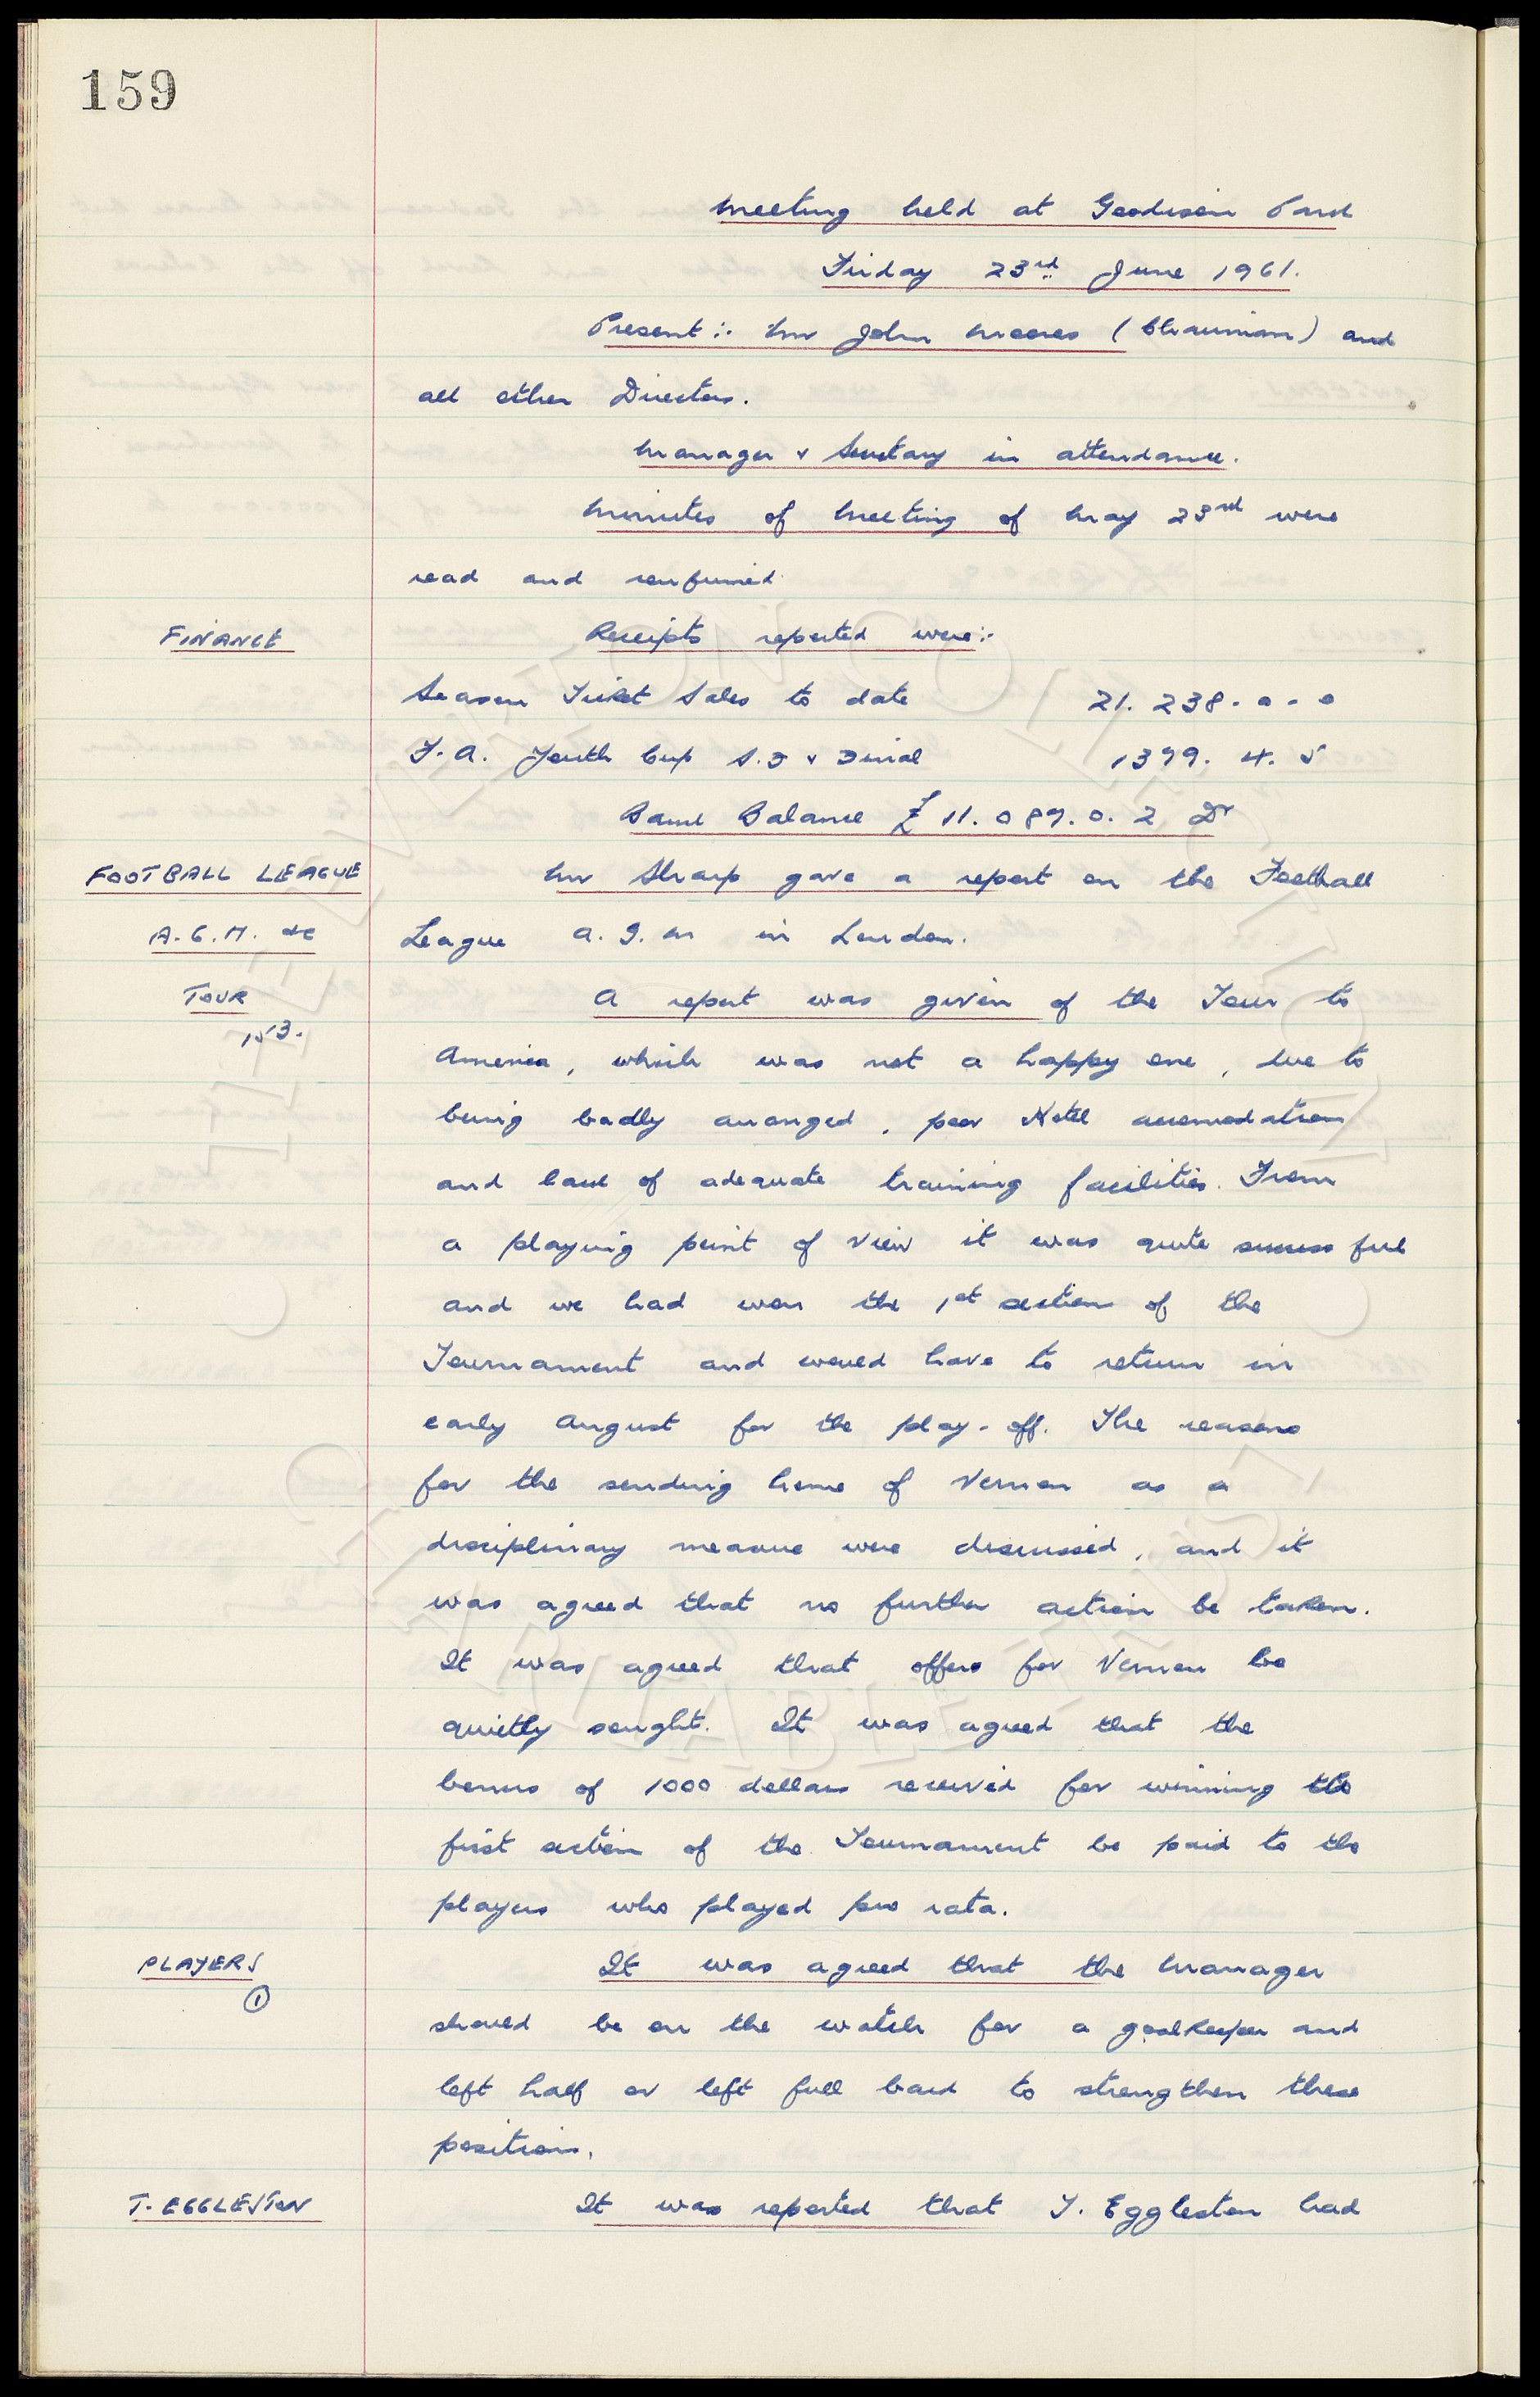 159
Meeting held at Goodison Park
Friday 23rd June 1961.
Present:- Mr John Moores (Chairman) and
all other Directors.
Manager & Secretary in attendance.
Minutes of Meeting of May 23rd were
read and confirmed
FINANCE Receipts reported were:-
Season Ticket Sales to date 21.238.0.0
F.A. Youth Cup S.F & Final 1399. 4. 5
Bank Balance £11.089.0.2 Dr
FOOTBALL LEAGUE Mr Sharp gave a report on the Football
A.G.M. etc League A.G.M in London.
TOUR A report was given of the Tour to
153. America, which was not a happy one, due to
being badly arranged, poor Hotel accomodation
and lack of adequate training facilities. From
a playing point of view it was quite successful
and we had won the 1st section of the
Tournament and would have to return in
early August for the play-off. The reasons
for the sending home of Vernon as a
disciplinary measure were discussed, and it
was agreed that no further action be taken.
It was agreed that offers for Vernon be
quietly sought. It was agreed that the
bonus of 1000 dollars received for winning the
first section of the Tournament be paid to the
players who played pro rata.
PLAYERS It was agreed that the Manager
① should be on the watch for a goalkeeper and
left half or left full back to strengthen these
positions.
T. EGGLESTON It was reported that T. Eggleston had